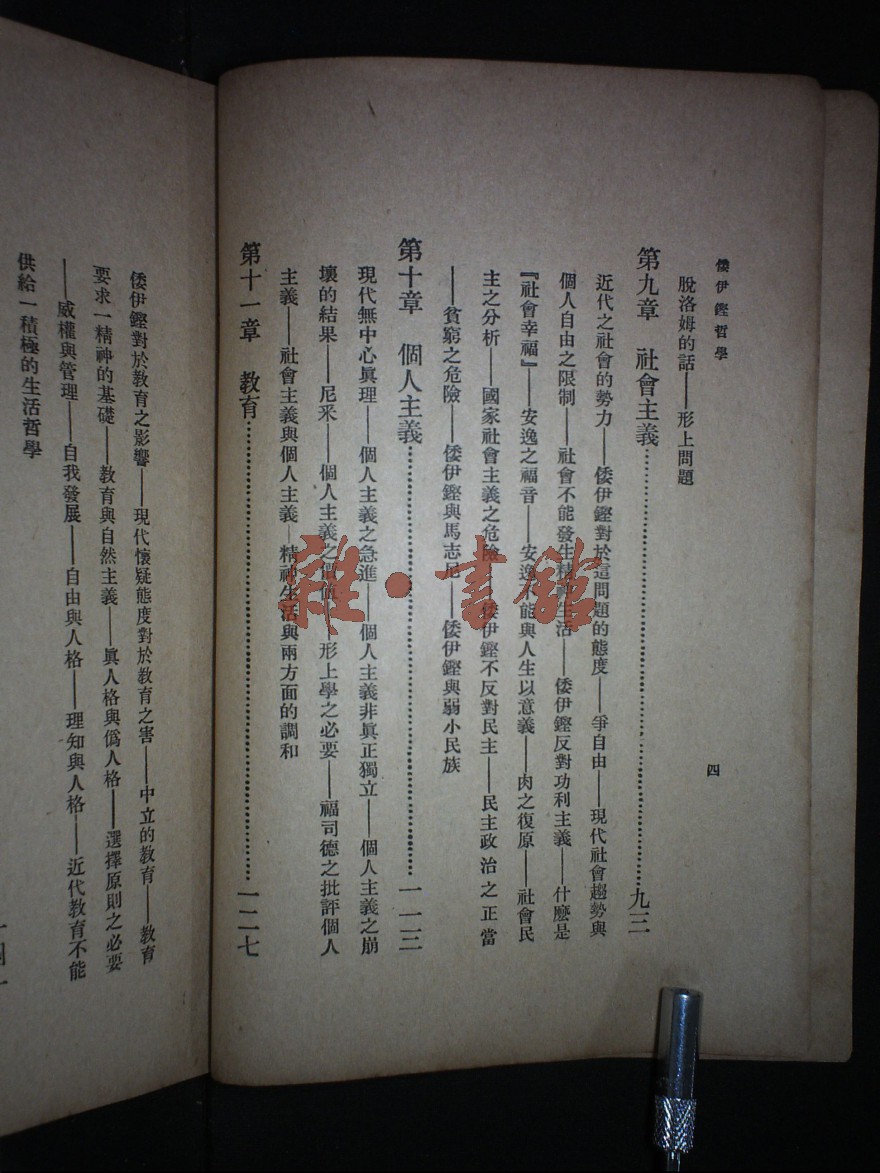 倭伊鏗哲學
四
脫洛姆的話——形上問題
第九章　社會主義……九三
近代之社會的勢力——倭伊鏗對於這問題的態度——爭自由——現代社會趨勢與
個人自由之限制——社會不能發生精神生活——倭伊鏗反對功利主義——什麽是
『社會幸福』——安逸之福音——安逸不能與人生以意義——肉之復原——社會民
主之分析——國家社會主義之危險——倭伊鏗不反對民主——民主政治之正當
——貧窮之危險——倭伊鏗與馬志尼——倭伊鏗與弱小民族
第十章　個人主義……一一三
現代無中心眞理——個人主義之急進——個人主義非眞正獨立——個人主義之崩
壞的結果——尼采——個人主義之價値——形上學之必要——福司德之批評個人
主義——社會主義與個人主義—精神生活與兩方面的調和
第十一章　教育……一二七
倭伊鏗對於教育之影響——現代懷疑態度對於教育之害——中立的教育——教育
要求一精神的基礎——教育與自然主義——眞人格與僞人格——選擇原則之必要
——威權與管理——自我發展——自由與人格——理知與人格——近代教育不能
供給一積極的生活哲學
雜·書館